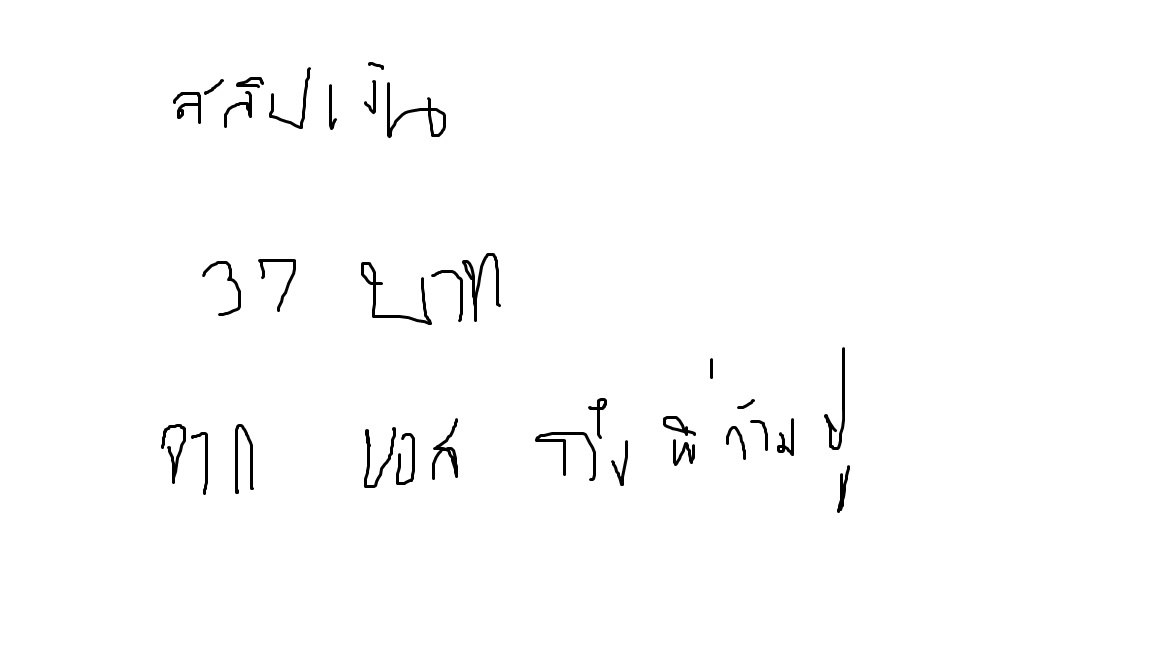 สลิปเงิน
37 บาท
จาก บอส ถึง พี่ก้ามปู